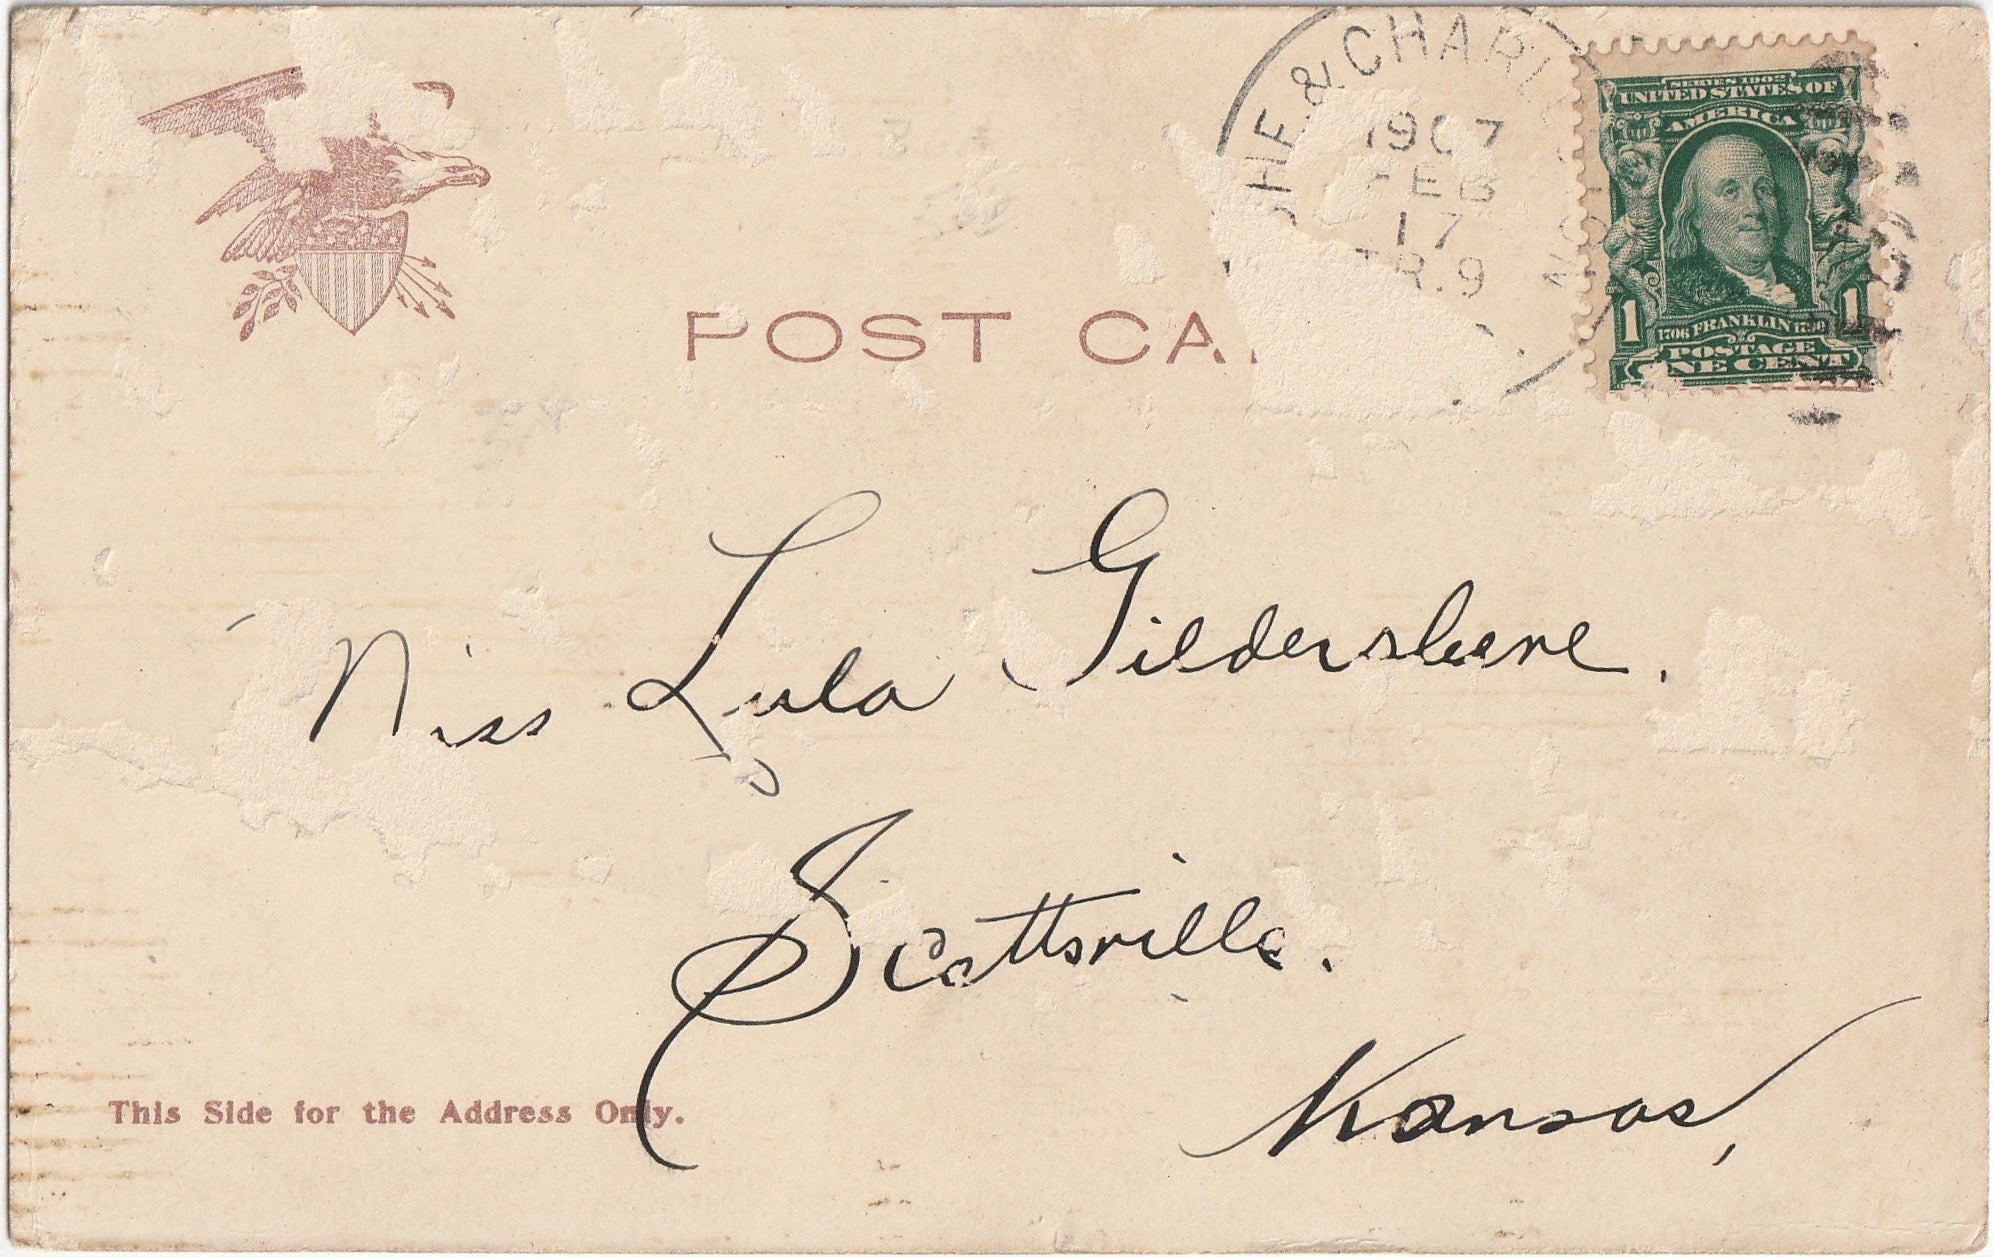 HE. & CHARL
1907
FEB
17
TR. 9
SERIES 1902
UNITED STATES OF
AMERICA
1 1
1706 FRANKLIN 1790
POSTAGE
ONE CENT
POST CA
Miss Lula Gildersleeve.
Scottsville.
Kansas,
This Side for the Address Only.